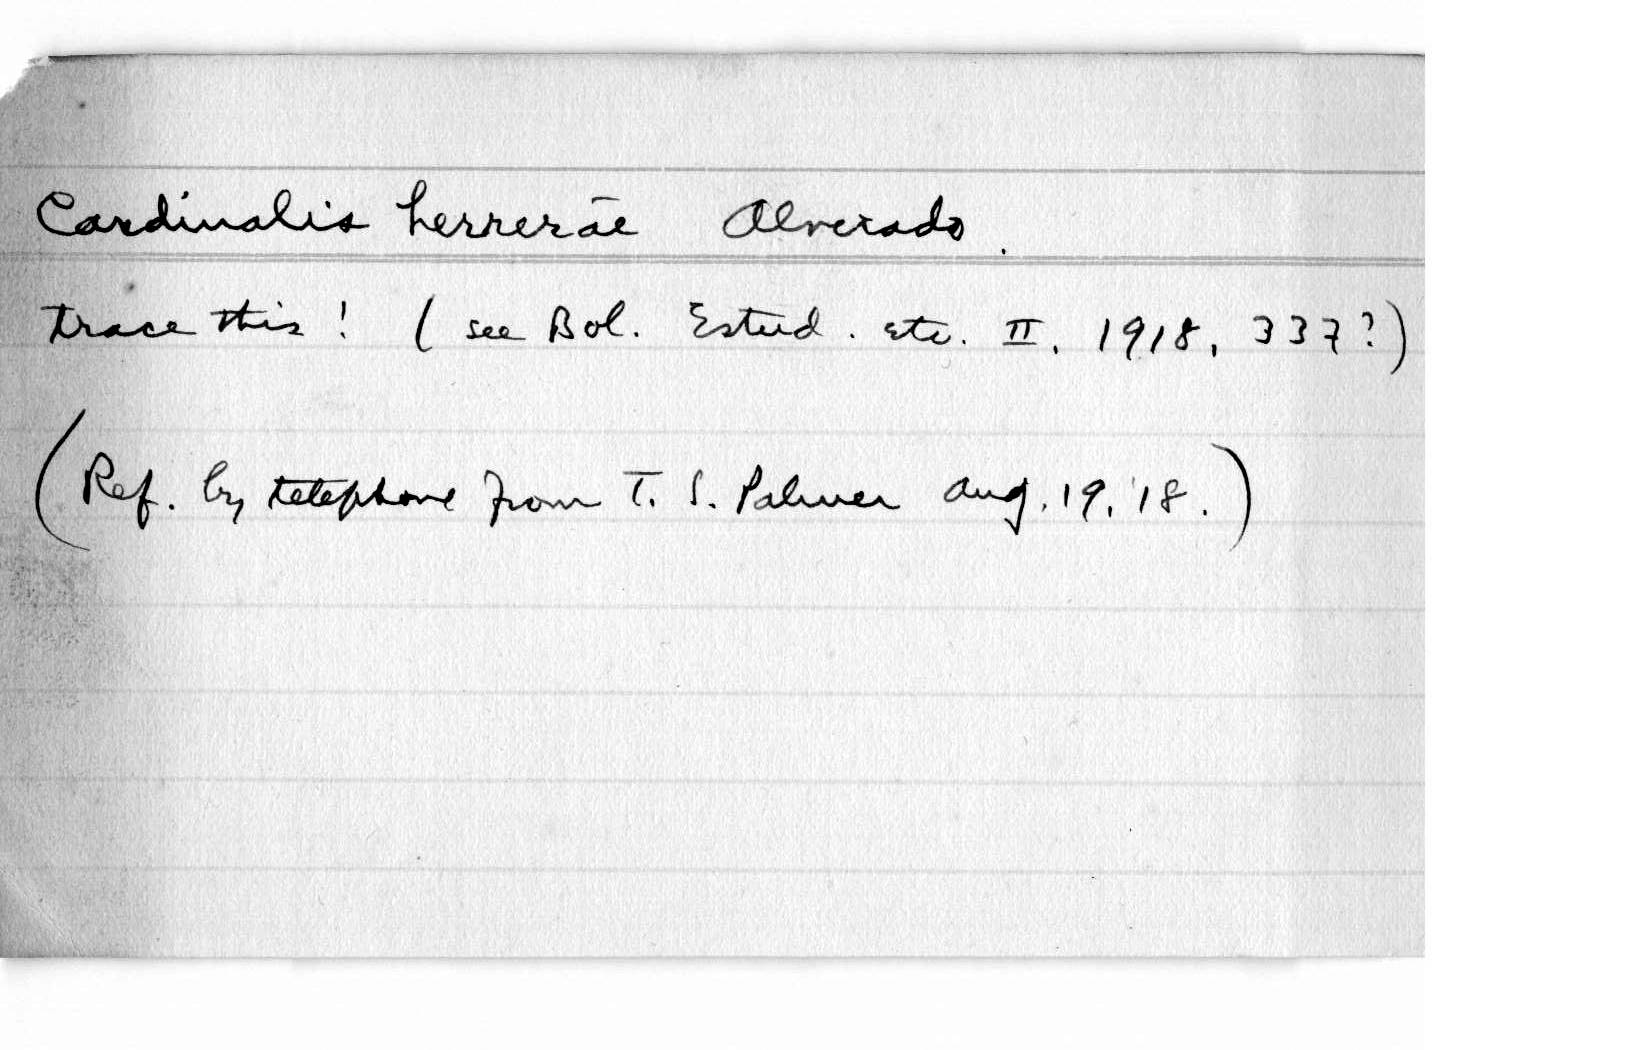 Cardinalis herrerae Alverado.
trace this! (see Bol. Estud. etc. II, 1918, 337?)
(Ref. by telephone from T. S. Palmer Aug. 19, '18.)